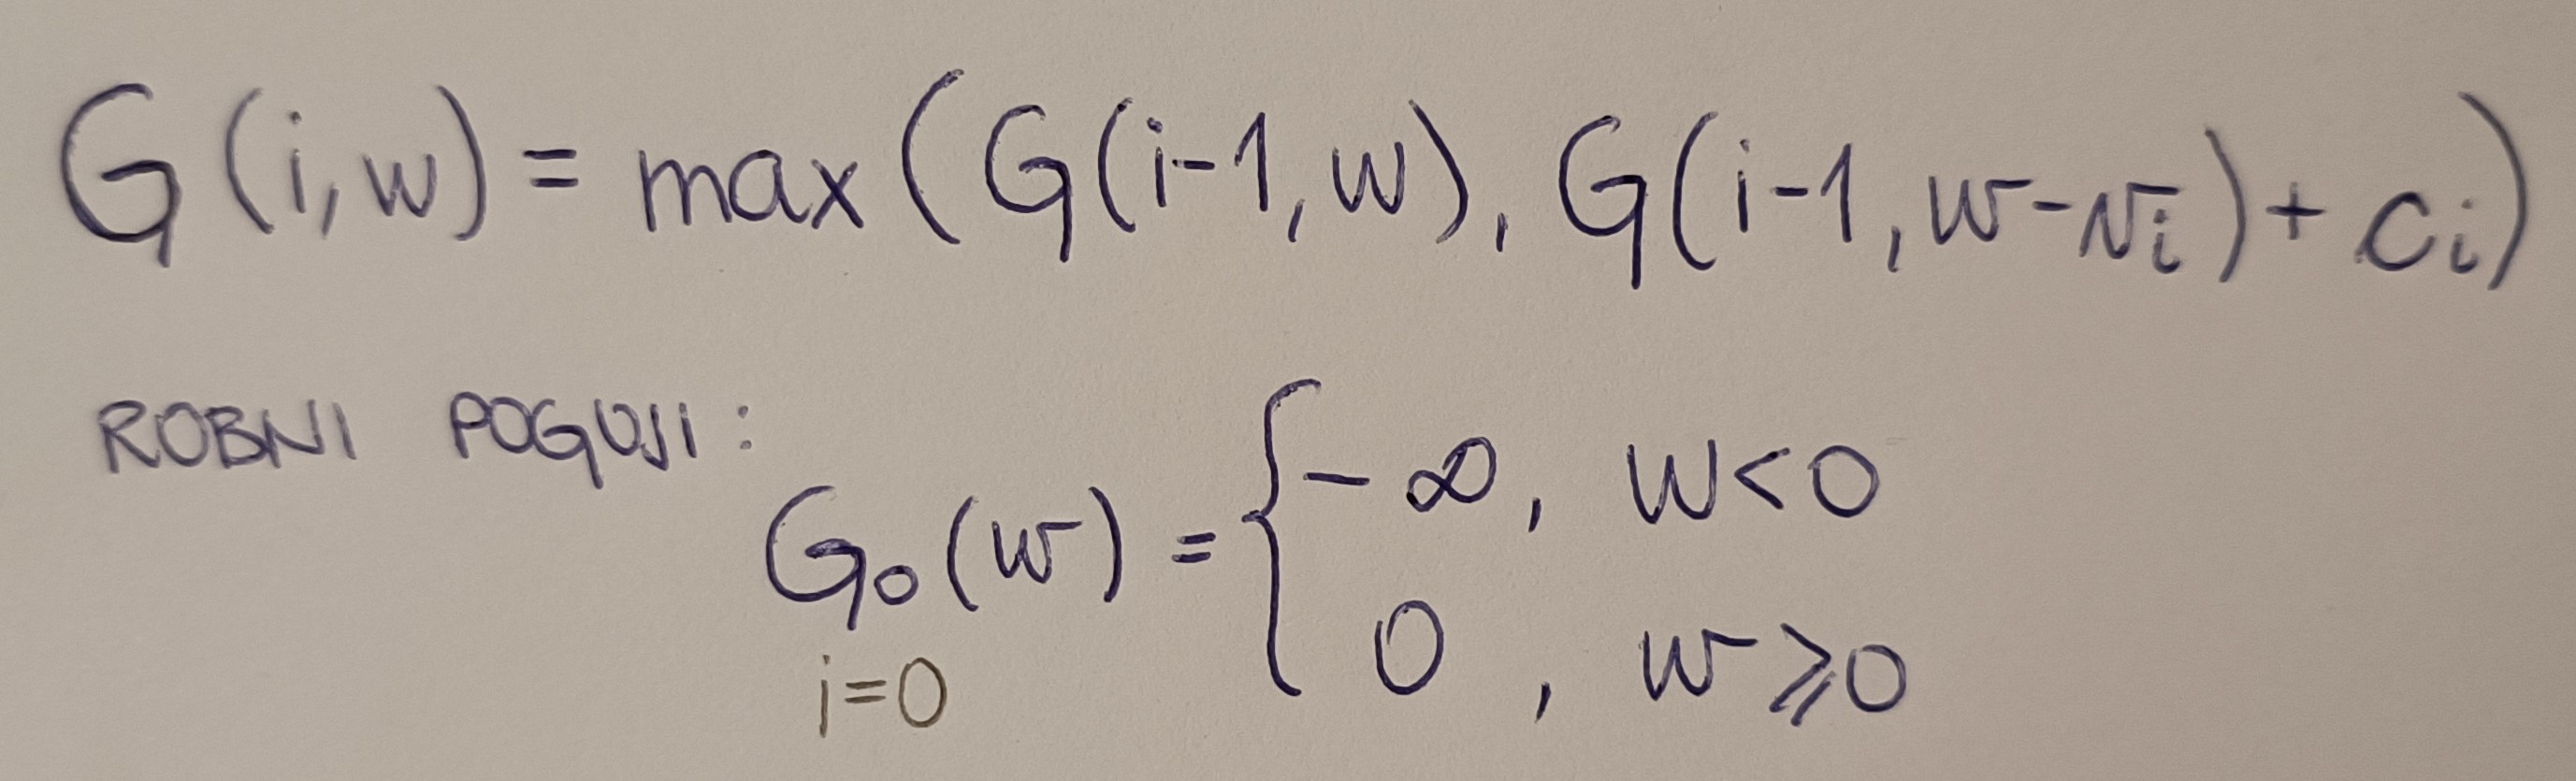 G(i,w) = max(G(i-1,w), G(i-1,w-vᵢ) + cᵢ)
ROBNI POGOJI:
G₀(w) = { -∞, w<0
0, w≥0
i=0